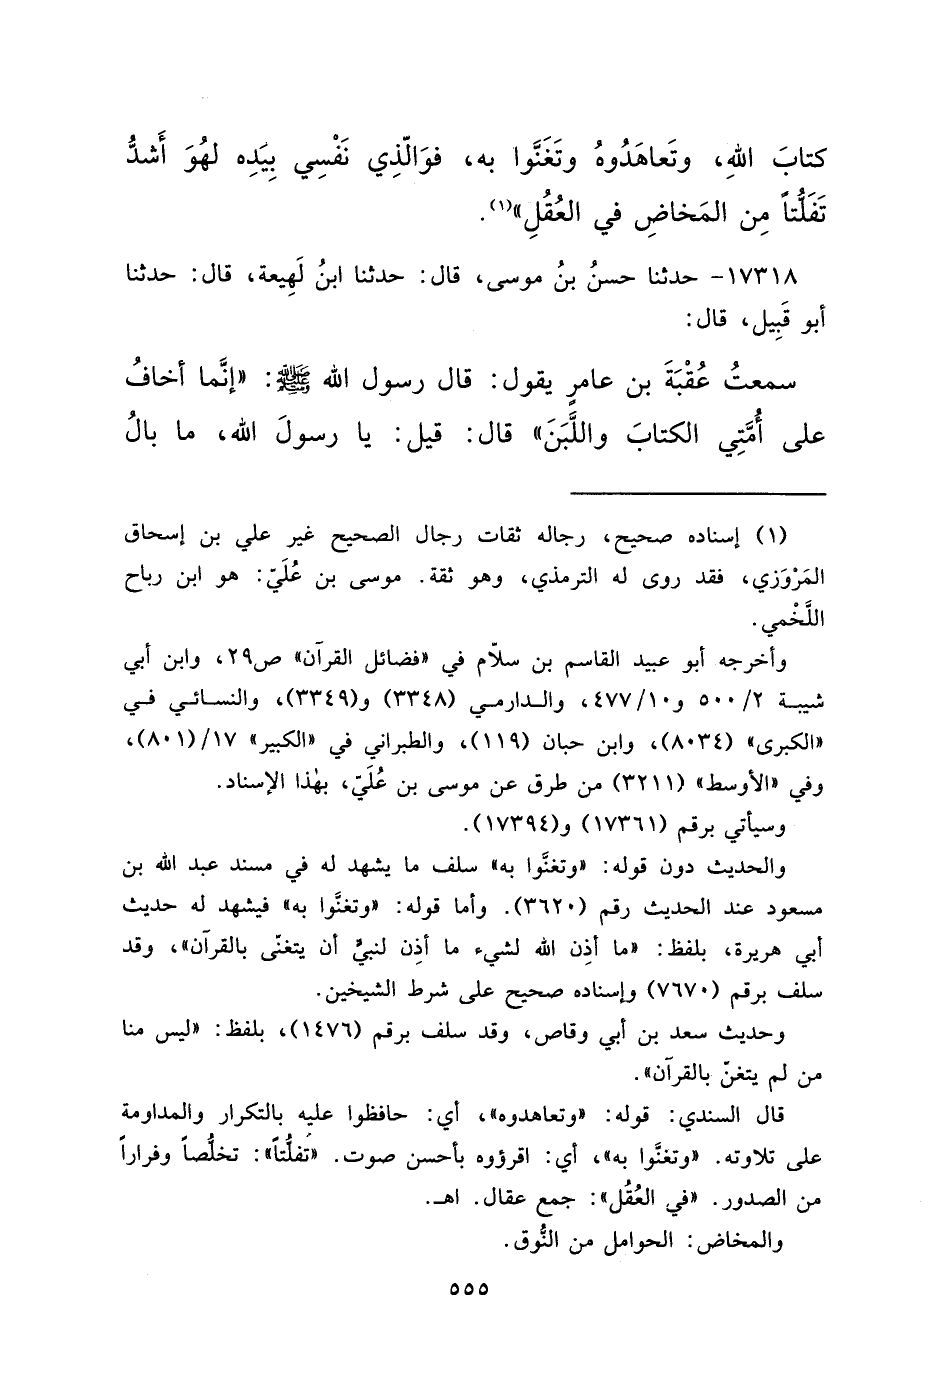 كتابَ اللهِ، وتَعاهَدُوهُ وتَغَنَّوا به، فوَالَّذِي نَفْسِي بِيَدِه لهُوَ أَشدُّ
تَفَلُّتاً مِن المَخاضِ في العُقُلِ»(١).
١٧٣١٨- حدثنا حسنُ بنُ موسى، قال: حدثنا ابنُ لَهِيعة، قال: حدثنا
أبو قَبِيل، قال:
سمعتُ عُقْبَةَ بن عامرٍ يقول: قال رسول الله ﷺ: «إنَّما أخافُ
على أُمَّتِي الكتابَ واللَّبَنَ» قال: قيل: يا رسولَ الله، ما بالُ
(١) إسناده صحيح، رجاله ثقات رجال الصحيح غير علي بن إسحاق
المَرْوَزي، فقد روى له الترمذي، وهو ثقة. موسى بن عُلَيّ: هو ابن رباح
اللَّخْمي.
وأخرجه أبو عبيد القاسم بن سلاّم في «فضائل القرآن» ص٢٩، وابن أبي
شيبة ٢/ ٥٠٠ و١٠/ ٤٧٧، والدارمي (٣٣٤٨) و(٣٣٤٩)، والنسائي في
«الكبرى» (٨٠٣٤)، وابن حبان (١١٩)، والطبراني في «الكبير» ١٧/(٨٠١)،
وفي «الأوسط» (٣٢١١) من طرق عن موسى بن عُلَيّ، بهٰذا الإسناد.
وسيأتي برقم (١٧٣٦١) و(١٧٣٩٤).
والحديث دون قوله: «وتغنَّوا به» سلف ما يشهد له في مسند عبد الله بن
مسعود عند الحديث رقم (٣٦٢٠). وأما قوله: «وتغنَّوا به» فيشهد له حديث
أبي هريرة، بلفظ: «ما أذِن الله لشيء ما أذِن لنبيٍّ أن يتغنّى بالقرآن»، وقد
سلف برقم (٧٦٧٠) وإسناده صحيح على شرط الشيخين.
وحديث سعد بن أبي وقاص، وقد سلف برقم (١٤٧٦)، بلفظ: «ليس منا
من لم يتغنّ بالقرآن».
قال السندي: قوله: «وتعاهدوه»، أي: حافظوا عليه بالتكرار والمداومة
على تلاوته. «وتغنَّوا به»، أي: اقرؤوه بأحسن صوت. «تَفلُّتاً»: تخلُّصاً وفراراً
من الصدور. «في العُقُل»: جمع عقال. اهـ.
والمخاض: الحوامل من النُّوق.
٥٥٥